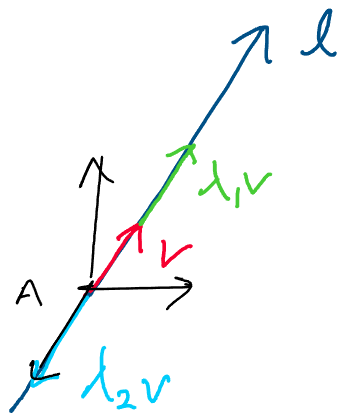 l
λ₁v
v
A
λ₂v